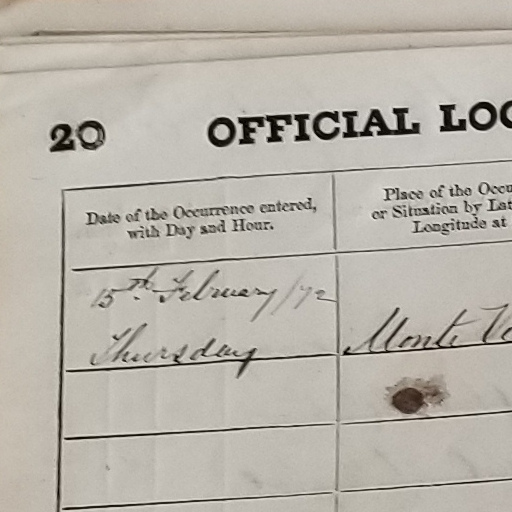 20 OFFICIAL LOG
Date of the Occurrence entered,
with Day and Hour.
Place of the Occu
or Situation by Lat
Longitude at
15th February/72
Thursday
Monte V